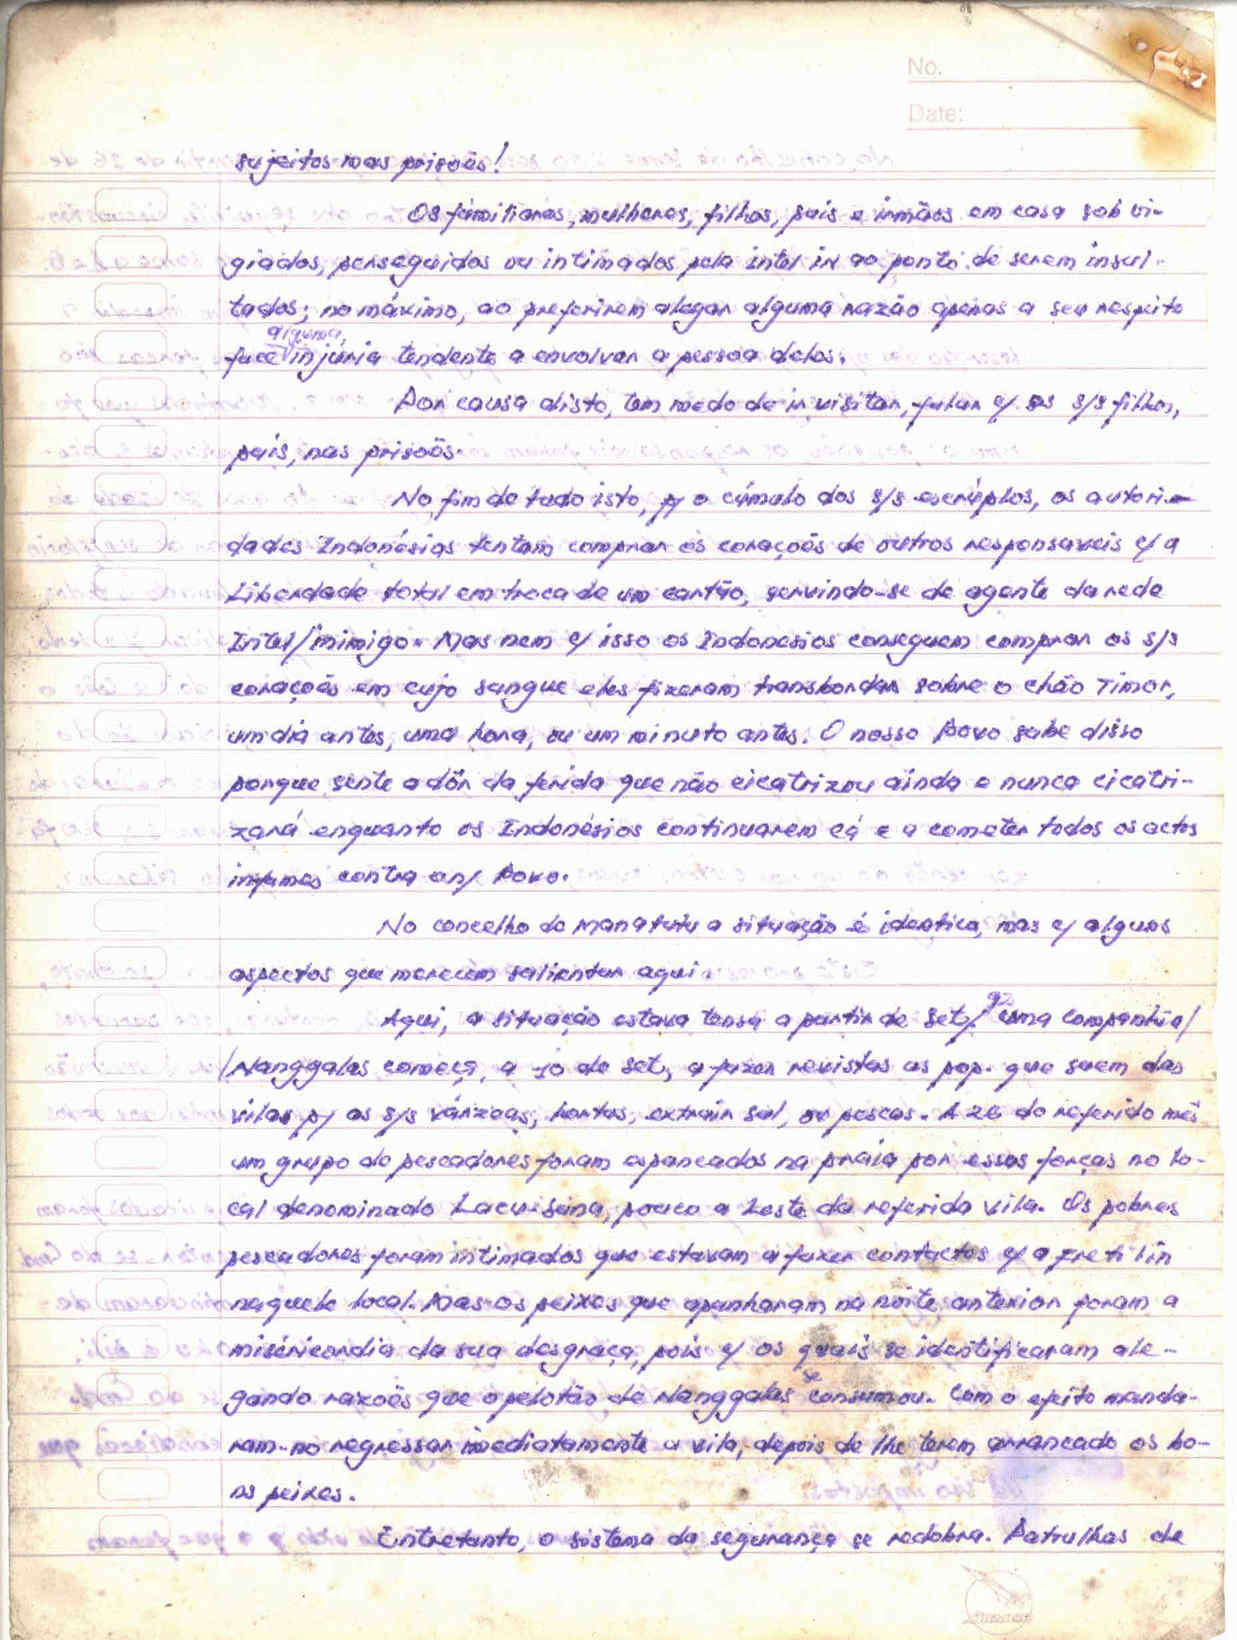 No.
Date:
sujeitos nas prisoës!
Os familiares, mulheres, filhos, pais e irmãos em casa sob vi-
giados, perseguidos ou intimados pela intel in ao ponto de serem insul-
tados; no máximo, ao preferirem alegar alguma razão apenas a seu respeito
alguma,
face injúria tendente a envolver a pessoa deles.
Por causa disto, tem medo de ir visitar, falar c/ os s/s filhos,
pais, nas prisoës.
No fim de tudo isto, p/ o cúmulo dos s/s escrúplos, os autori-
dades Indonésias tentam comprar os coraçoës de outros responsaveis c/ a
Liberdade total em troca de um cartão, servindo-se de agente da rede
Intel/inimigo. Mas nem c/ isso os Indonesios conseguem comprar os s/s
coraçoës em cujo sangue eles fizeram transbordar sobre o chão Timor,
um dia antes, uma hora, ou um minuto antes. O nosso Povo sabe disso
porque sente a dôr da ferida que não cicatrizou ainda e nunca cicatri-
zará enquanto os Indonésios continuarem cá e a cometer todos os actos
infames contra o n/ Povo.
No concelho de Manatutu a situação é identica, mas c/ alguns
aspectos que merecem salientar aqui.
Aqui, a situação estava tensa a partir de Set/ uma Companhia/
/Nanggalas começa, a 10 de Set, a fazer revistas as pop. que saem das
vilas p/ as s/s várzeas, hortas, extrair sal, ou pescas. A 26 do referido mês
um grupo de pescadores foram espancados na praia por essas forças no lo-
cal denominado Lacu-Seina, pouco a Leste da referida vila. Os pobres
pescadores foram intimados que estavam a fazer contactos c/ a Fretilin
naquele local. Mas os peixes que apanharam na noite anterior foram a
miséricordia da sua desgraça, pois c/ os quais se identificaram ale-
gando razoës que o pelotão de Nanggalas se consumou. Com o efeito manda-
ram-no regressar imediatamente a vila, depois de lhe terem arrancado os bo-
ns peixes.
Entretanto, o sistema da segurança se redobra. Patrulhas de